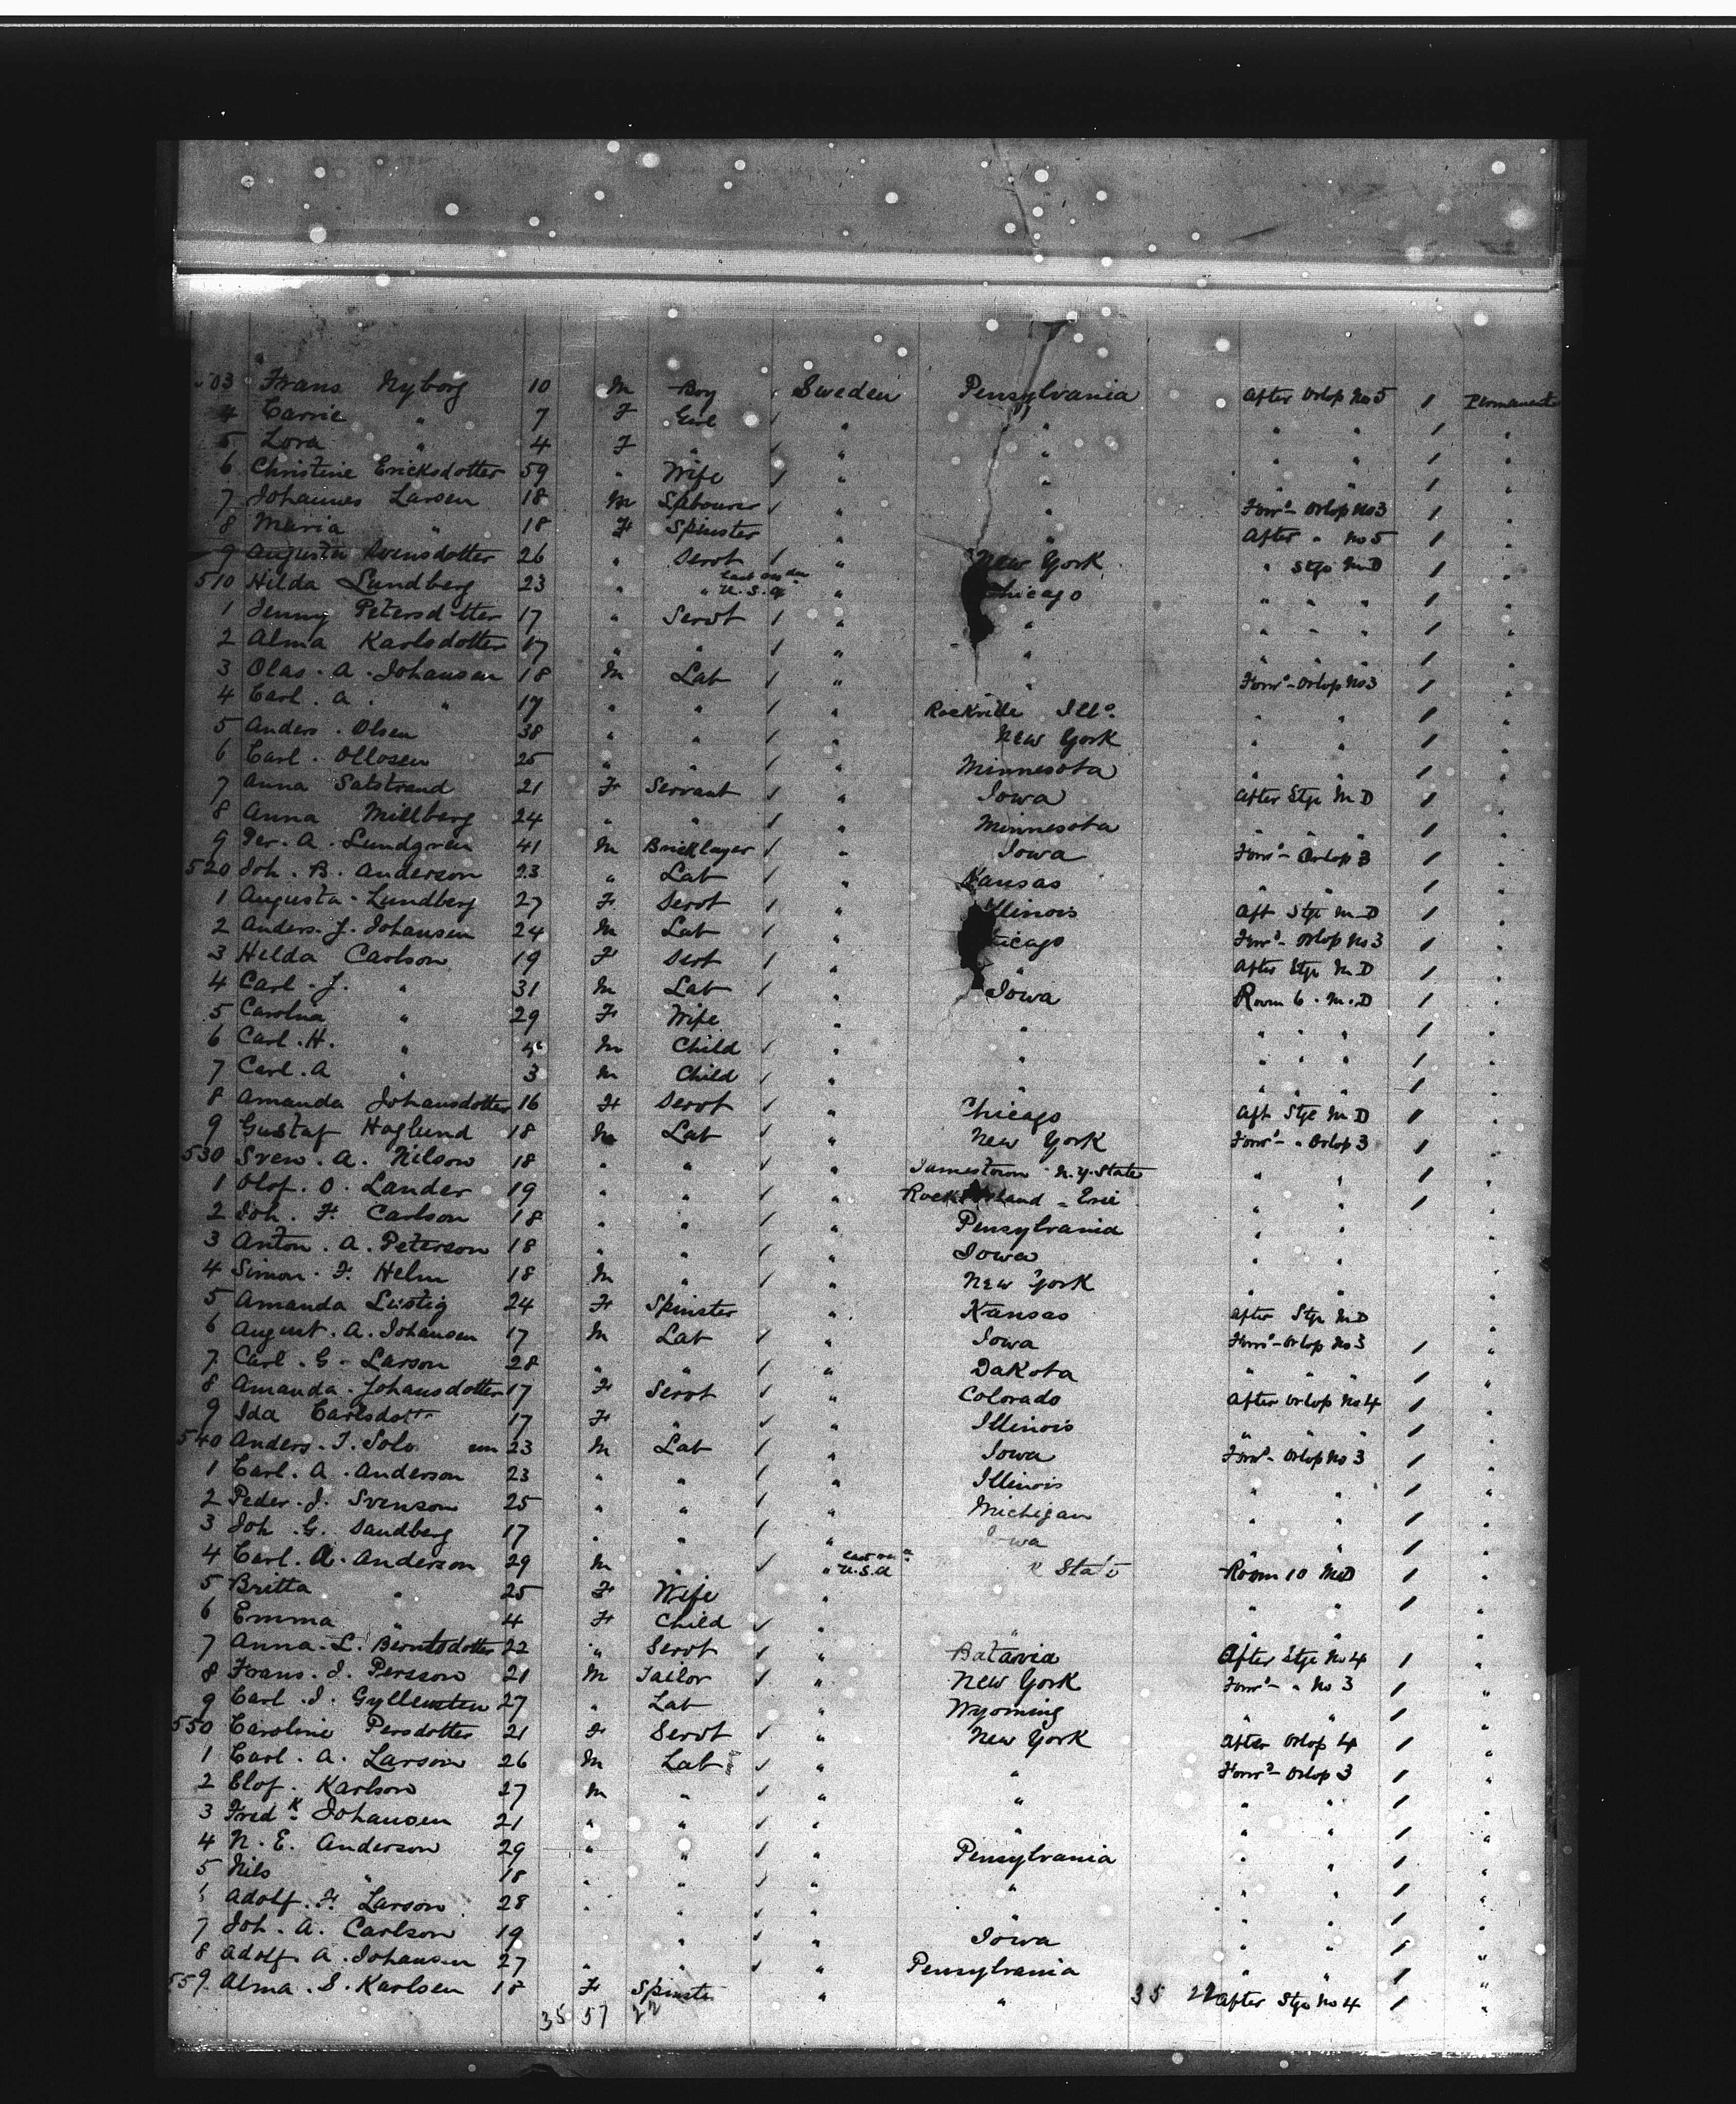 503 Frans Nyborg 10 M Boy Sweden Pensylvania After Orlop No 5 1 Permanent
4 Carrie " 7 F Girl " " " " 1 "
5 Lora " 4 F " " " " " 1 "
6 Christine Ericksdotter 59 " Wife " " " " 1 "
7 Johannes Larsen 18 M Labourer " " Forwd Orlop No 3 1 "
8 Maria " 18 F Spinster " " After " No 5 1 "
9 Augusta Svensdotter 26 " Servt " New York " Stge M D 1 "
510 Hilda Lundberg 23 " " U.S.A " Chicago " " " 1 "
1 Jenny Petersdotter 17 " Servt " " " " " 1 "
2 Alma Karlsdotter 17 " " " " " " " 1 "
3 Olas. A. Johansen 18 M Lab " " Forwd Orlop No 3 1 "
4 Carl. A. " 17 " " " Rockville Ills. " " 1 "
5 Anders. Olsen 38 " " " New York " " 1 "
6 Carl. Ollosen 25 " " " Minnesota " " 1 "
7 Anna Salstrand 21 F Servant " Iowa After Stge M D 1 "
8 Anna Millberg 24 " " " Minnesota " " " 1 "
9 Per. A. Lundgren 41 M Bricklayer " Iowa Forwd Orlop 3 1 "
520 Joh. B. Anderson 23 " Lab " Kansas " " 1 "
1 Augusta Lundberg 27 F Servt " Illinois Aft Stge M D 1 "
2 Anders. J. Johansen 24 M Lab " Chicago Forwd Orlop No 3 1 "
3 Hilda Carlson 19 F Servt " " After Stge M D 1 "
4 Carl. J. " 31 M Lab " Iowa Room 6. M. D 1 "
5 Carolina " 29 F Wife " " " " " 1 "
6 Carl. H. " 4 M Child " " " " " 1 "
7 Carl. A " 3 M Child " " " " " 1 "
8 Amanda Johansdotter 16 F Servt " Chicago Aft Stge M D 1 "
9 Gustaf Haglund 18 M Lab " New York Forwd " Orlop 3 1 "
530 Sven. A. Nilson 18 " " " Jamestown N.Y. State " " 1 "
1 Olof. O. Lander 19 " " " " " 1 "
2 Joh. F. Carlson 18 " " " Pensylvania " " "
3 Anton. A. Peterson 18 " " " Iowa " " "
4 Simon. F. Helm 18 M " " New York " " "
5 Amanda Lustig 24 F Spinster " Kansas After Stge M D "
6 August. A. Johansen 17 M Lab " Iowa Forwd Orlop No 3 1 "
7 Carl. G. Larson 28 " " " Dakota " " 1 "
8 Amanda. Johansdotter 17 F Servt " Colorado After Orlop No 4 1 "
9 Ida Carlsdott 17 F " " Illinois " " " 1 "
540 Anders. J. 23 M Lab " Iowa Forwd Orlop No 3 1 "
1 Carl. A. Anderson 23 " " " Illinois " " 1 "
2 Peder. J. Svenson 25 " " " Michigan " " 1 "
3 Joh. G. Sandberg 17 " " " Iowa " " 1 "
4 Carl. A. Anderson 29 M " " U.S.A State Room 10 M D 1 "
5 Britta " 25 F Wife " " " 1 "
6 Emma " 4 F Child " " " " 1 "
7 Anna. L. Berntsdotter 22 " Servt " Batavia After Stge No 4 1 "
8 Frans. J. Persson 21 M Tailor " New York Forwd " No 3 1 "
9 Carl. J. Gyllensten 27 " Lab " Wyoming " " 1 "
550 Caroline Persdotter 21 F Servt " New York After Orlop 4 1 "
1 Carl. A. Larson 26 M Lab " " Forwd Orlop 3 1 "
2 Elof. Karlson 27 M " " " " " 1 "
3 Fredk Johansen 21 " " " " " " 1 "
4 N. E. Anderson 29 " " " Pensylvania " " 1 "
5 Nils " 18 " " " " " " 1 "
Adolf. F. Larson 28 " " " " " " 1 "
7 Joh. A. Carlson 19 " " " Iowa " " 1 "
8 Adolf. A. Johansen 27 " " " Pensylvania " " 1 "
559 Alma. S. Karlsen 18 F Spinster " " 35 22 After Stge No 4 1 "
35 57 22